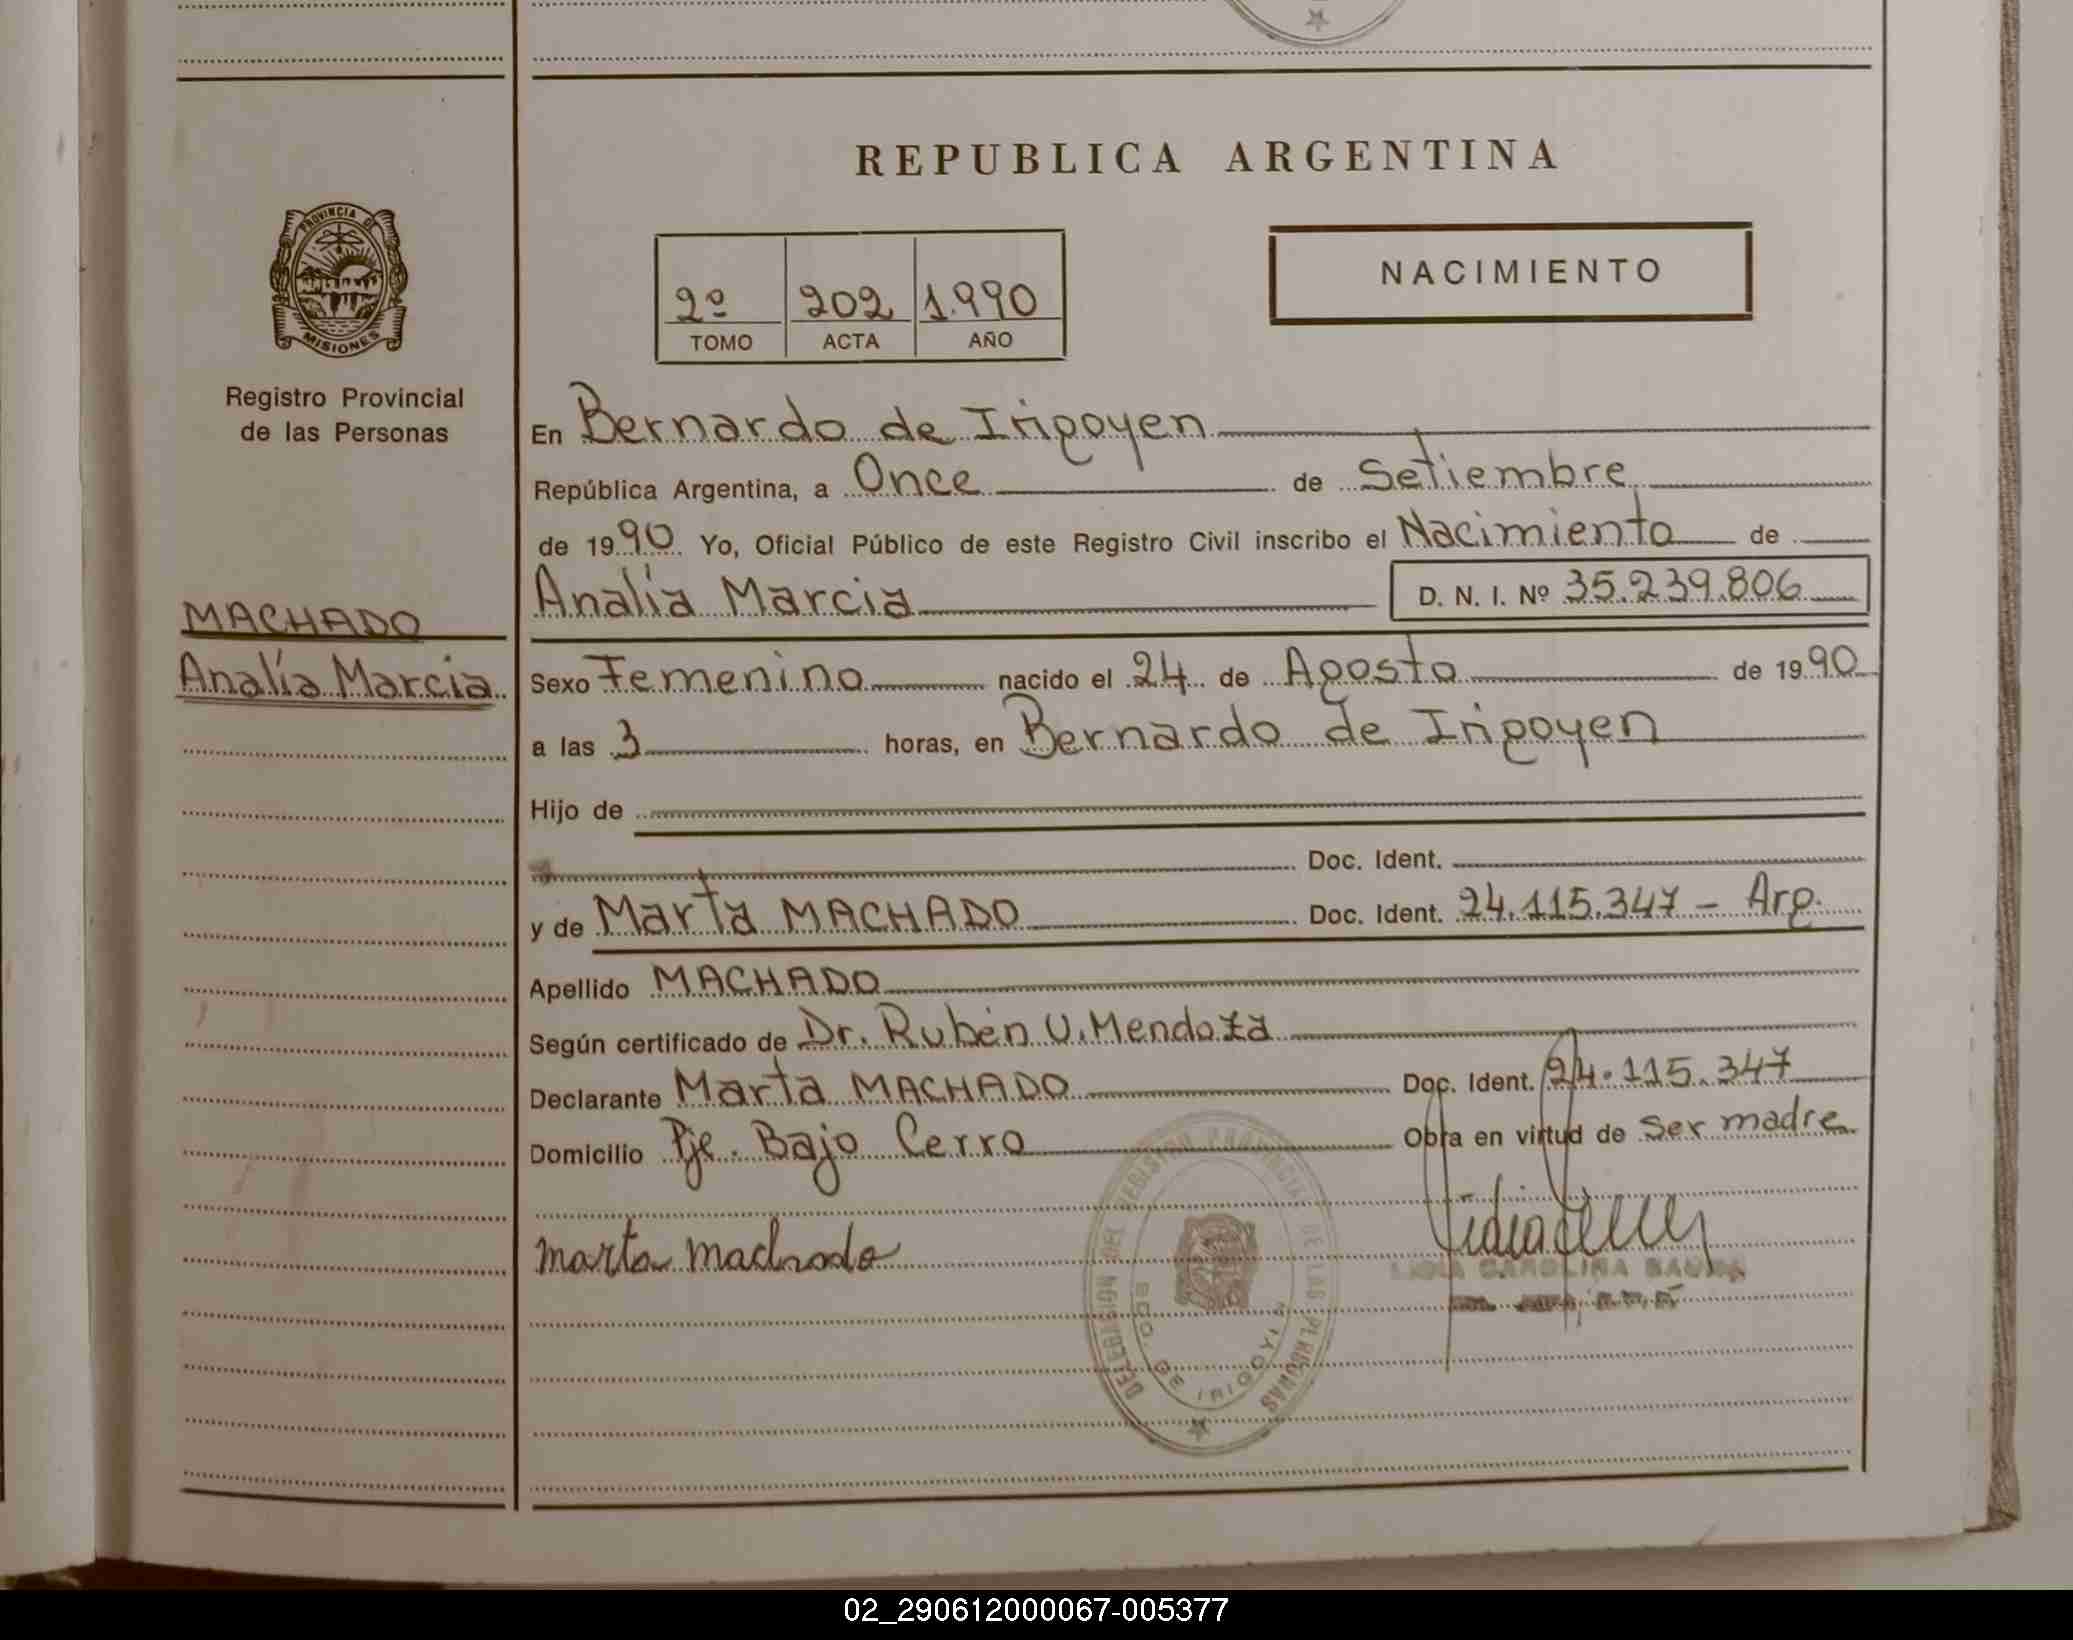 REPUBLICA ARGENTINA
PROVINCIA DE MISIONES
Registro Provincial
de las Personas
NACIMIENTO
2º 202 1.990
TOMO ACTA AÑO
En Bernardo de Irigoyen
República Argentina, a Once de Setiembre
de 1990 Yo, Oficial Público de este Registro Civil inscribo el Nacimiento de
Analía Marcia D. N. I. Nº 35.239.806
MACHADO
Analía Marcia
Sexo Femenino nacido el 24 de Agosto de 1990
a las 3 horas, en Bernardo de Irigoyen
Hijo de
Doc. Ident.
y de Marta MACHADO Doc. Ident. 24.115.347 - Arg.
Apellido MACHADO
Según certificado de Dr. Rubén U. Mendoza
Declarante Marta MACHADO Doc. Ident. 24.115.347
Domicilio Pje. Bajo Cerro Obra en virtud de ser madre
marta machado
LIDIA CAROLINA
DELEGACION DEL REGISTRO PROVINCIAL DE LAS PERSONAS
BDO. DE IRIGOYEN
02_290612000067-005377